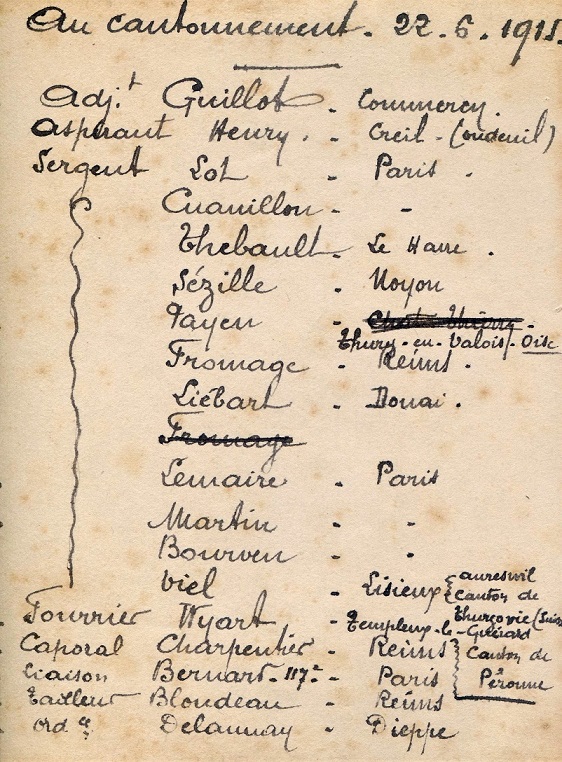 Au cantonnement. 22.6.1915.
Adj.t Guillot - Commercy.
Aspirant Henry. - Creil - (oudeuil)
Sergent Lot - Paris.
Cuanillon - -
Thebault - Le Havre.
Sézille - Noyon
Payen -
Thury-en-Valois - Oise
Fromage - Reims.
Liébart - Douai.
Fromage
Lemaire - Paris
Martin - -
Bourven - -
Viel - Lisieux { auresnil
canton de
Thurgovie (Suisse
Fourrier Wyart - Templeux-le-Guérard
Caporal Charpentier - Reims { Canton de
Liaison Bernard - 117e - Paris Péronne
Tailleur Blondeau - Reims
Ord ce Delaunay - Dieppe